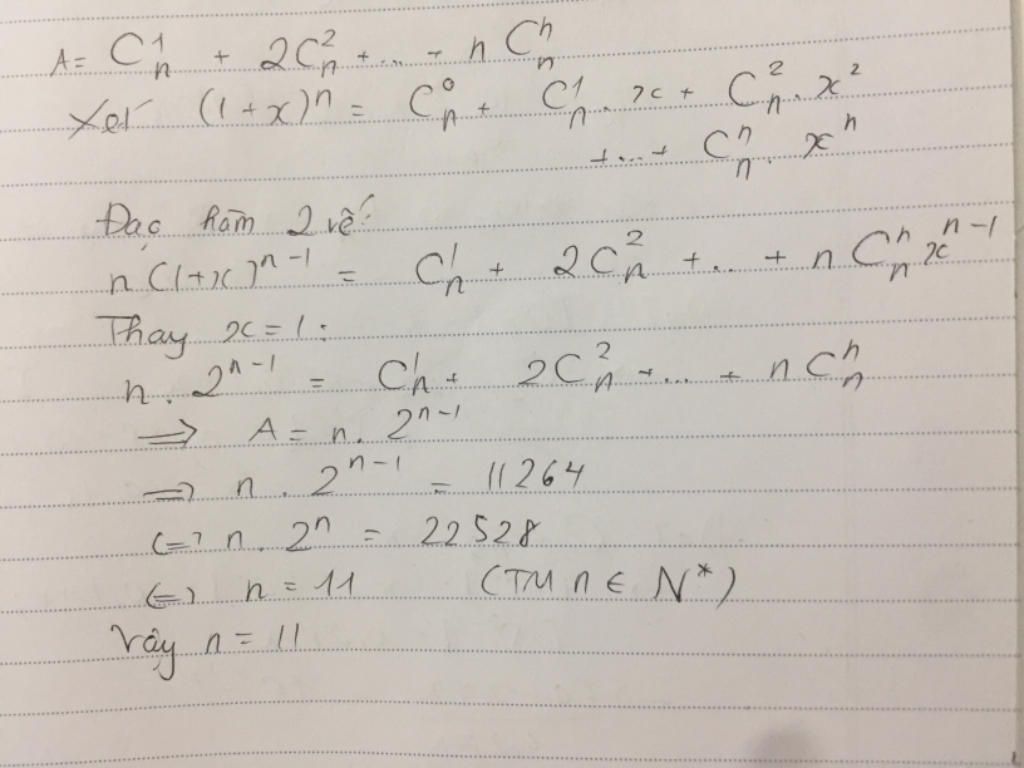 A = C¹ₙ + 2C²ₙ + ... + n Cⁿₙ
Xét (1+x)ⁿ = C⁰ₙ + C¹ₙ . x + C²ₙ . x²
+ ... + Cⁿₙ . xⁿ
Đạo hàm 2 vế:
n(1+x)ⁿ⁻¹ = C¹ₙ + 2C²ₙ + ... + n Cⁿₙ xⁿ⁻¹
Thay x = 1 :
n . 2ⁿ⁻¹ = C¹ₙ + 2C²ₙ + ... + n Cⁿₙ
=> A = n . 2ⁿ⁻¹
=> n . 2ⁿ⁻¹ = 11264
<=> n . 2ⁿ = 22528
<=> n = 11 (TM n ∈ N*)
Vậy n = 11